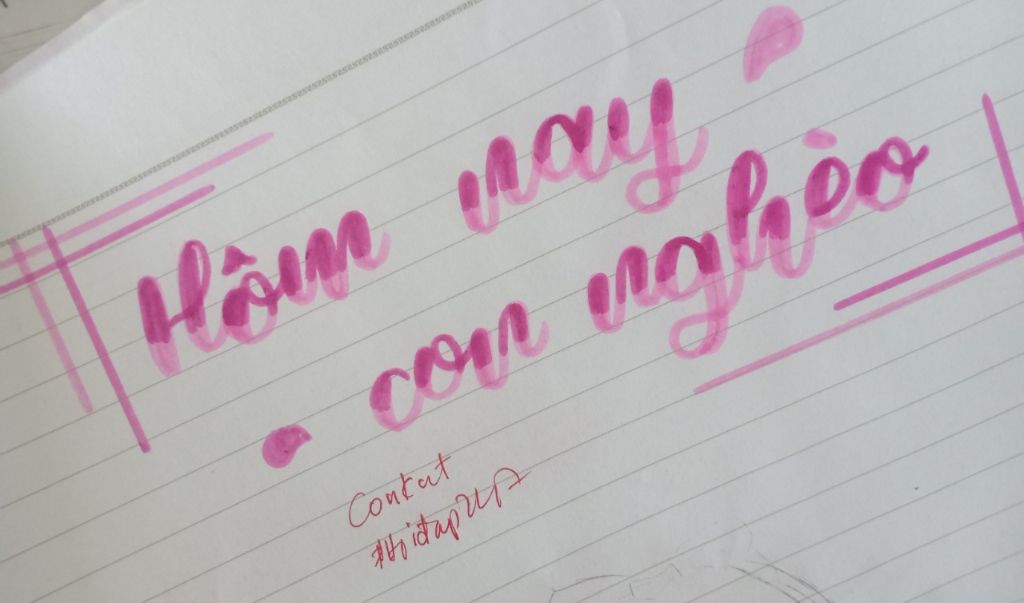 Hôm nay
con nghèo
Conkat
#Hoidap247